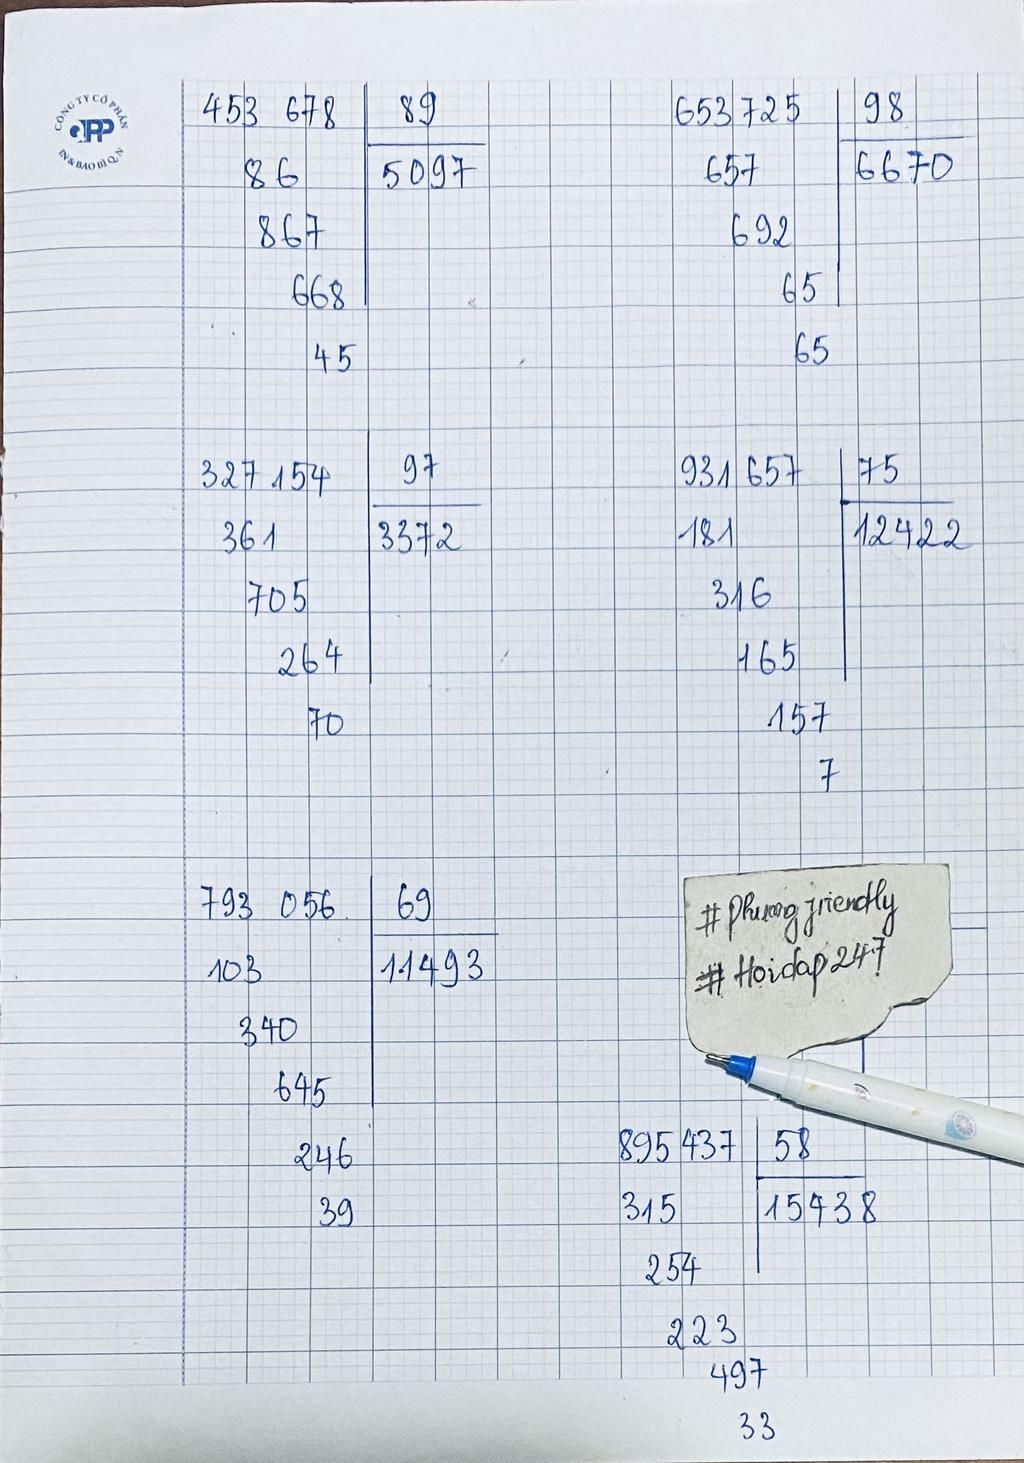 CÔNG TY CỔ PHẦN
QPP
IN & BAO BÌ Q.N
453 678 89
86 5097
867
668
45
653 725 98
657 6670
692
65
65
327 154 97
361 3372
705
264
70
931 657 75
181 12422
316
165
157
7
793 056 69
103 11493
340
645
246
39
# Phuong friendly
# Hoidap 247
895 437 58
315 15438
254
223
497
33